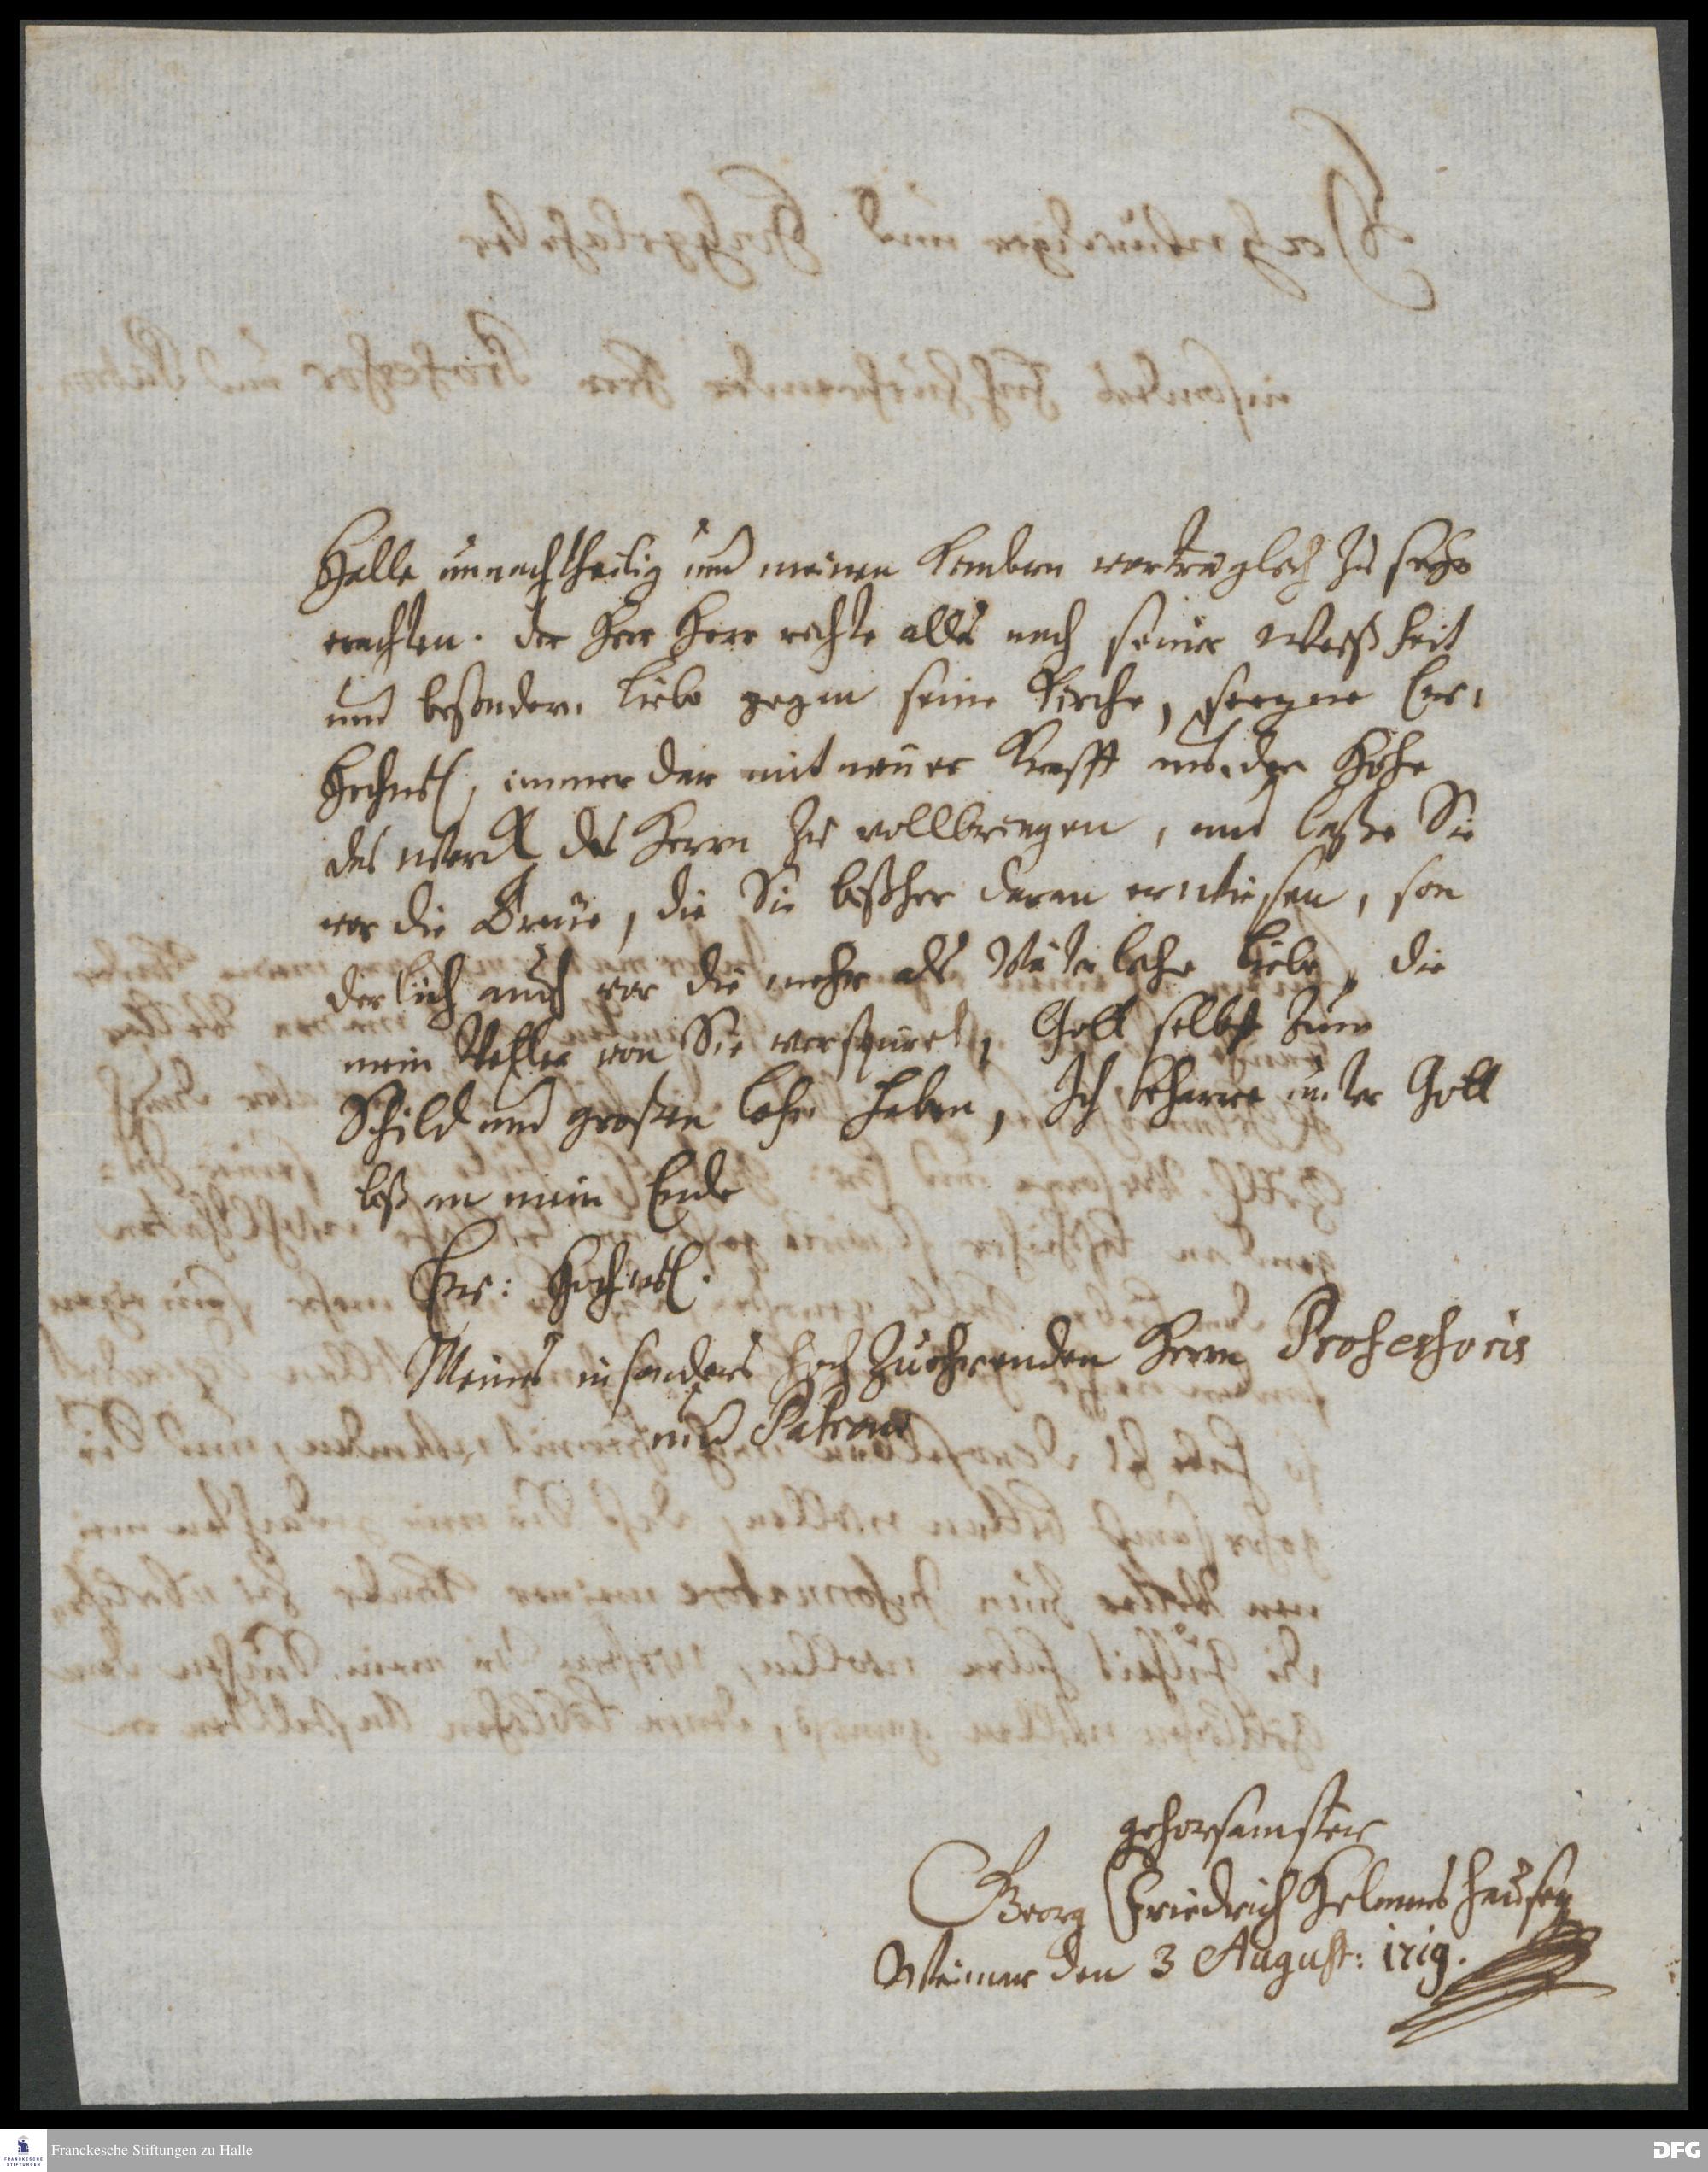 Halle unnachtheilig und meinen Kindern vorträglich zu seyn
erachten. der Herr Herr richte alles nach seiner Weißheit
und besondern Liebe gegen seine Kirche, seegne Ew:
Hochw, immer dar mit neuer Krafft aus der Höhe
das werck des Herrn zu vollbringen, und laße Sie
vor die Treüe, die Sie bißher daran erwiesen, son
derlich auch vor die mehr als Väterliche Liebe, die
mein Vetter von Sie verspüret, Gott selbst zum
Schild und großen Lohn haben, Ich beharre unter Gott
biß an mein Ende
Ew: Hochw.
Meines insonders hoch zuehrenden Herrn Professoris
und Patrons
gehorsamster
Georg Friedrich Helmershausen
Weimar den 3 August: 1719.
Franckesche Stiftungen zu Halle
DFG